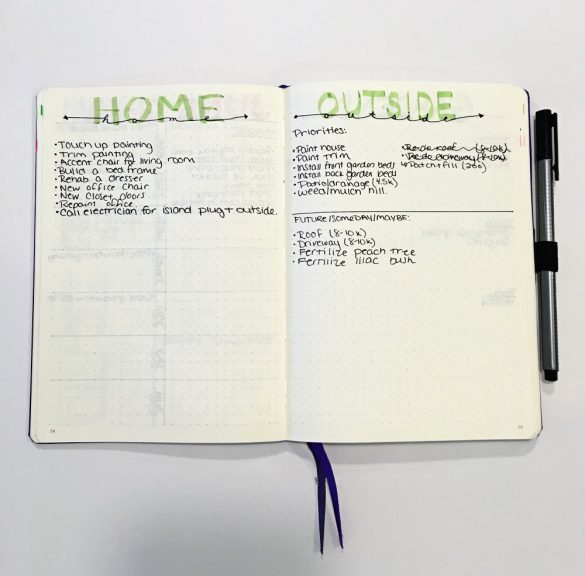 HOME
home
• Touch up painting
• Trim painting
• Accent chair for living room
• Build a bed frame
• Rehab a dresser
• New office chair
• New closet doors
• Repaint office
• Call electrician for island plug + outside.
OUTSIDE
outside
Priorities:
• Paint house
• Paint trim
• Install front garden beds
• Install back garden beds
• Patio/drainage (4.5K)
• Weed/mulch hill
• Redo roof (8-10K)
• Redo driveway (8-10K)
Patch + fill (
FUTURE/SOMEDAY/MAYBE:
• Roof (8-10K)
• Driveway (8-10K)
• Fertilize peach tree
• Fertilize lilac bush
78
79